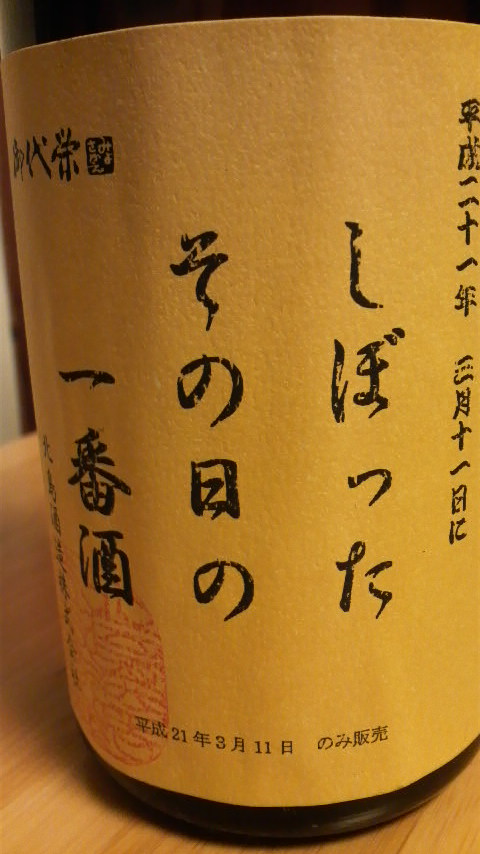 平成二十一年 三月十一日に
しぼった
その日の
一番酒
御代栄
みよさかえ
平成21年3月11日 のみ販売